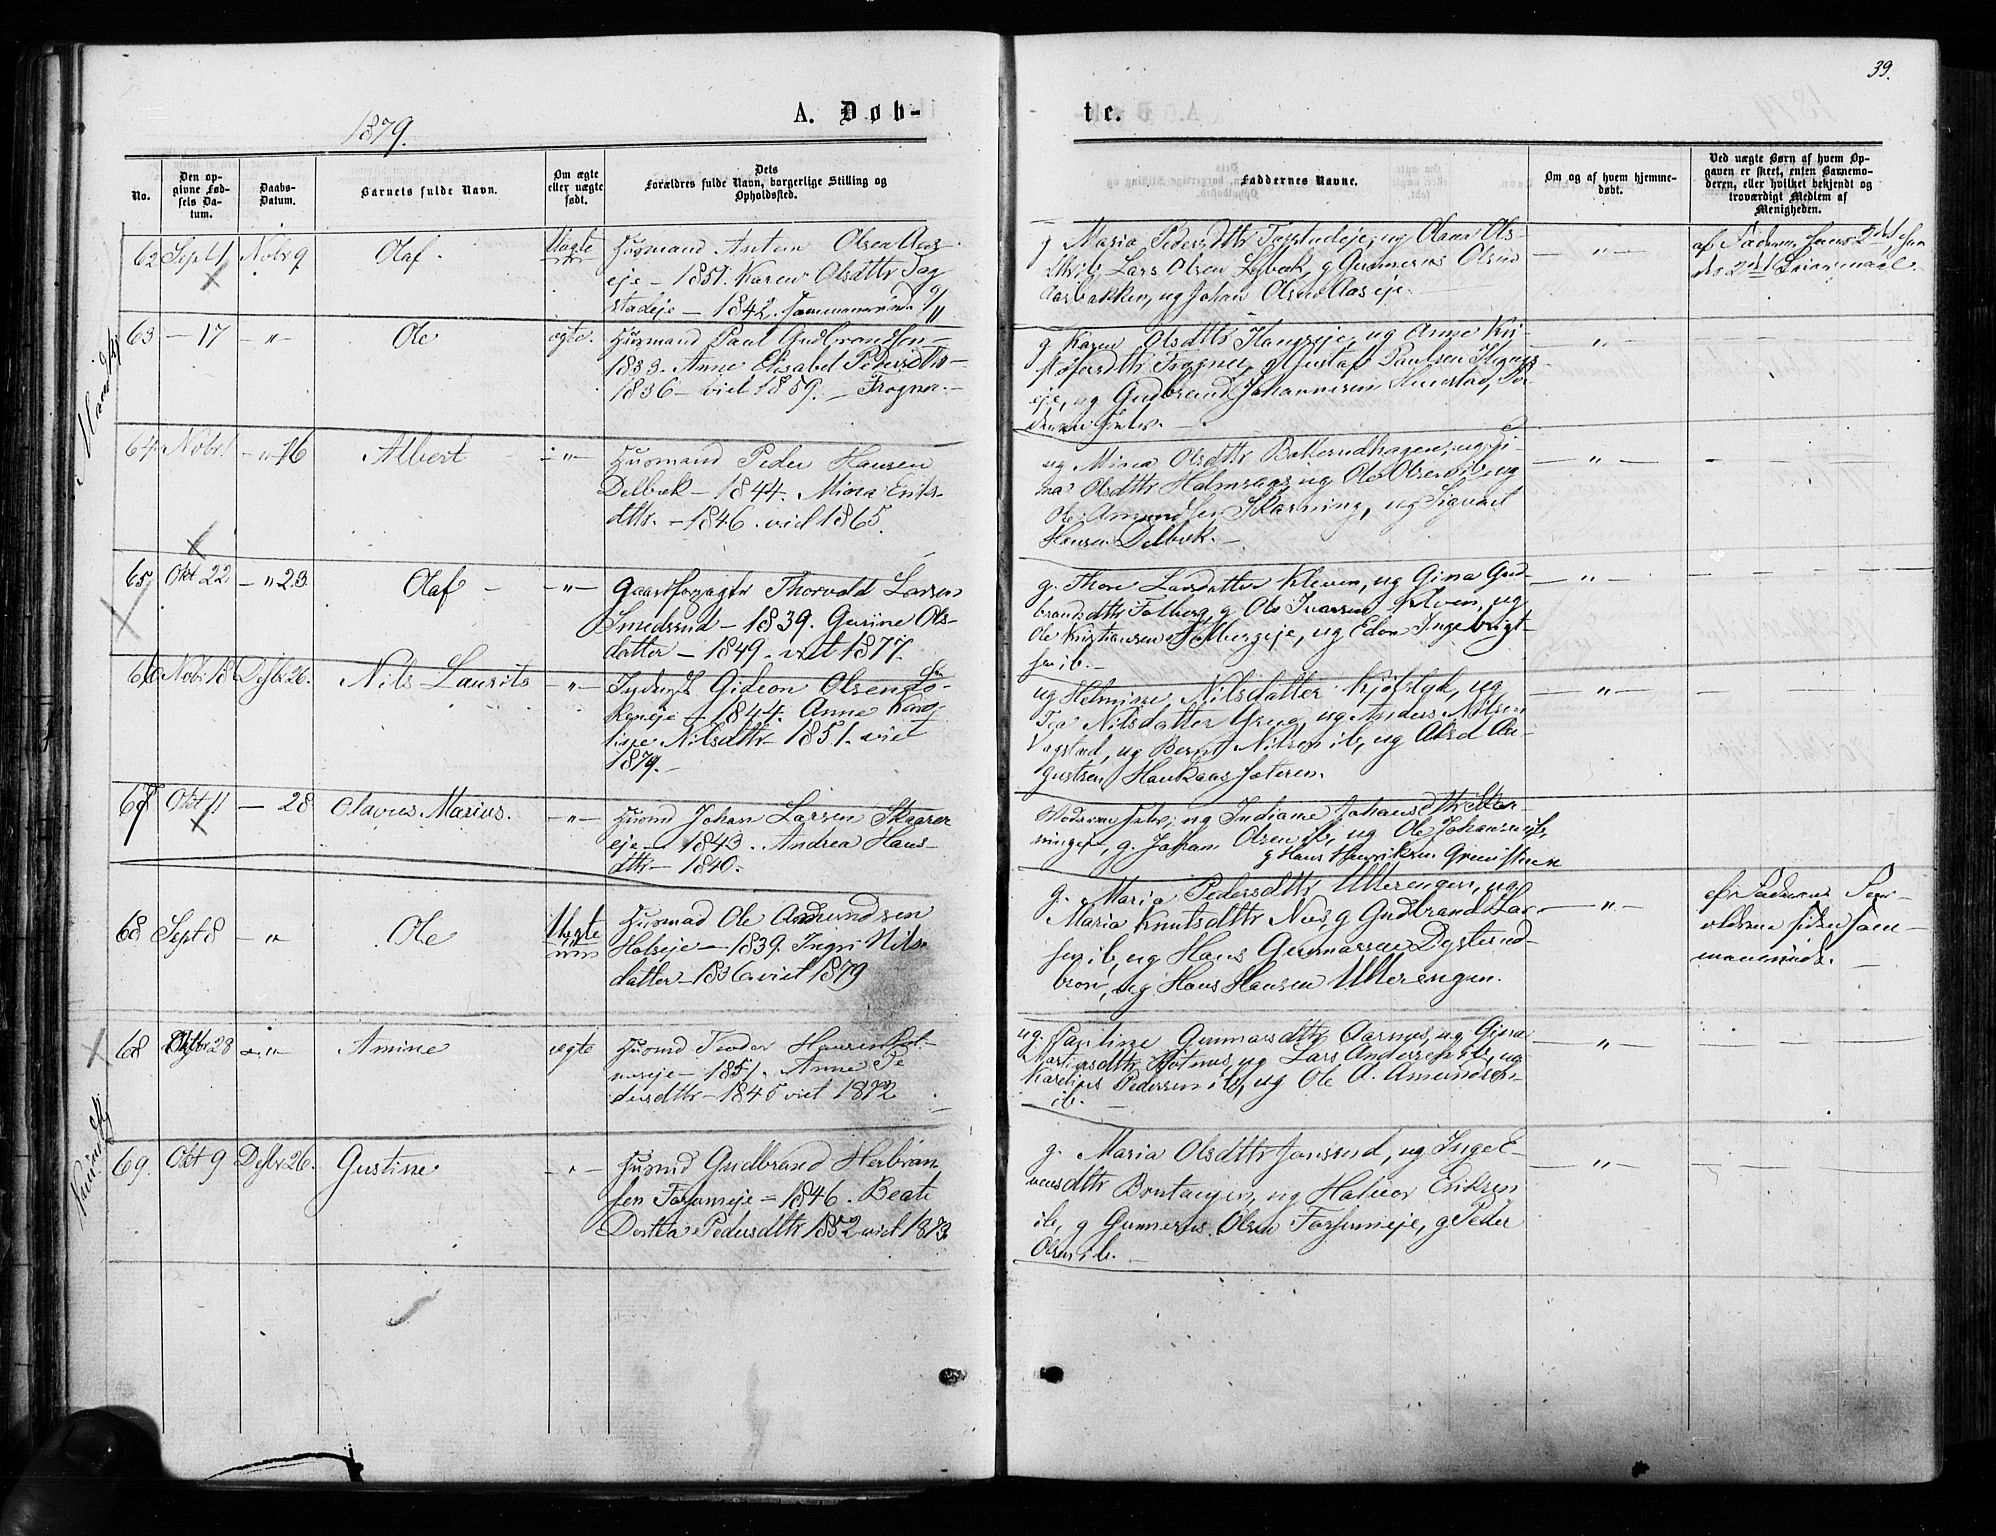 39.
1879.
A. Døb-
te.
No.
Den op-
givne Fød-
sels Da-
tum.
Daabs-
Datum.
Barnets fulde Navn.
Om ægte
eller uægte
født.
Dets
Forældres fulde Navn, borgerlige Stilling og
Opholdssted.
Faddernes Navne.
Om og af hvem hjemme-
døbt.
Ved uægte Børn af hvem Op-
gaven er skeet, enten Barnemo-
deren, eller hvilket bekjendt og
troværdigt Medlem af
Menigheden.
62 Sept 1 Nobr 9 Olaf. Uægte
Husmand Anton Olsen Aas-
eje — 1851. Karen Olsdttr Tag
stadeje — 1842.
g Maria Pedersdttr Tagstadeje, ug Olava Ols-
Lars Olsen Lybæk, g Gunnerus Olsen
Aasbakken, ug Johan Olsen Aaseje.
— " —
af Faderen hans 2det hen
des 2det Leiermaal.
63 — 17 — " — Ole ægte.
Husmand Paul Gudbrandsen —
1833. Anne Elisabet Pedersdttr —
1836 — viet 1859. — Frogner. —
g Karen Olsdttr Haugseje, ug Anne Kri-
stofersdttr Frogner, g Gustaf Paulsen
eje, ug Gudbrand Johannesen
— " —
64 Nobr 1 — " 16 Albert — " —
Husmand Peder Hansen
Delbæk — 1844. Mina Eriks-
dttr. — 1846. viet 1865.
ug Mina Olsdttr Bakerudhagen, ug Gi-
na Olsdttr Helmsaas, ug Ole Olsen ib, ug
Ole Amundsen Skarning, ug Sigvart
Hansen Delbæk. —
— " —
65 Okt 22 — " 23 Olaf — — " —
Gaardforpagter Thorvald Larsen
Smedsrud — 1839. Gurine Ols-
datter — 1849 — viet 1877.
g. Thore Larsdatter Kleven, ug Gina Gud-
brandsdttr Falberg, g Ole Ivarsen Kleven, ug
Ole Kristiansen Falbergeje, ug Edon Ingebrigt-
sen ib. —
— " —
66 Nobr 18 Dsbr 26. Nils Laurits — " —
Gideon Olsen
1844. Anne
Nilsdttr — 1851. viet
1879. —
ug Helmine Nilsdatter Kjølstad, ug
Tea Nilsdatter Grue, ug Anders Nilsen
Vagstad, ug Bernt Nilsen ib, ug Axel Au-
gustsen
— " —
67 Okt 11 — 28 Olavus Marius. — " —
Husmd Johan Larsen Skaarer
eje — 1843. Andrea Hans-
dttr — 1840.
Moderen selv, ug Indiane Johansdttr Skar-
ningen, g. Johan Olsen ib, ug Ole Johansen ib,
g Hans Henriksen
68 Sept 8 — " Ole Uægte
Husmad Ole Amundsen
Holseje — 1839. Ingri Nils-
datter — 1836 viet 1879
g. Maria Pedersdttr Ulterengen, ug
Maria Knutsdttr Nes, g Gudbrand Lar-
sen ib, ug Hans Gunnarsen Dysterud-
bron, ug Hans Hansen Ulterengen.
— " —
Af Faderen For-
ældrene siden sam-
menviede. —
68 28 — " Amine ægte
Husmd Teodor Hansen
neseje — 1851. Anne Pe
dersdttr — 1845 viet 1872
ug. Pauline Gunnarsdttr Aarnes, ug Gina
Martinsdttr Holmes, ug Lars Andersen ib, ug
Karelius Pedersen ib, ug Ole A. Amundsen
ib. —
— " —
69. Okt 9 Dsbr 26. Gustine — " —
Husmd Gudbrand Herbran
sen Fossumeje — 1846. Beate
Dortea Pedersdttr 1852 viet 1873
g. Maria Olsdttr Jonsrud, ug Inge E-
vensdttr Brutangen, ug Halvor Eriksen
ib, g Gunnerus Olsen Fossumeje, g Peder
Olsen ib. —
— " —